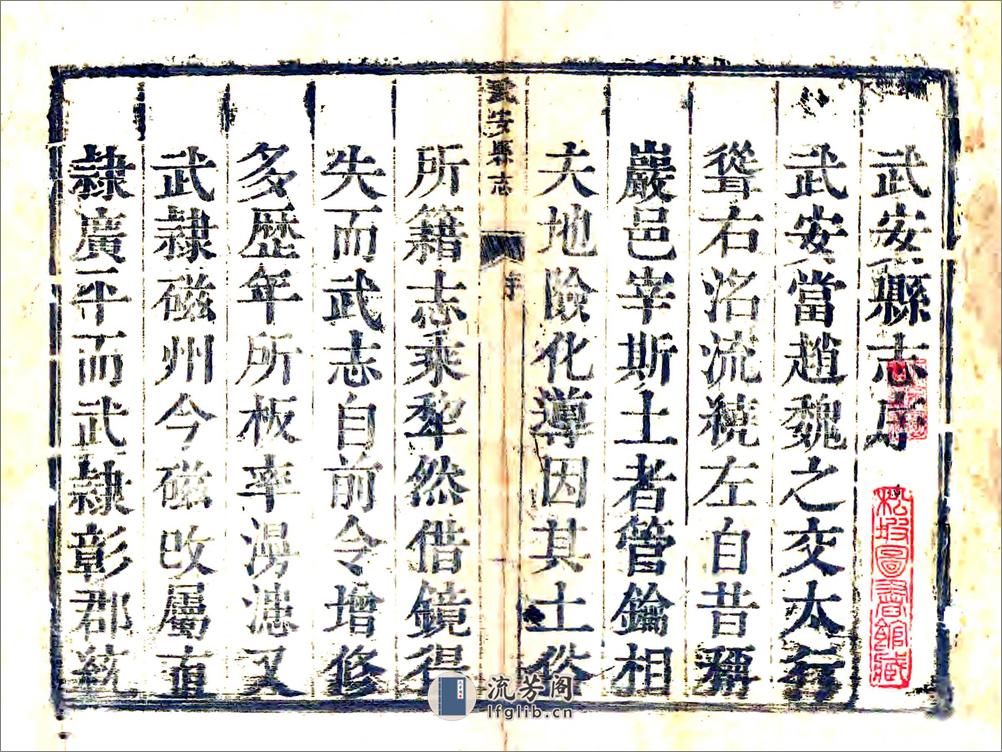 武安縣志序
武安當趙魏之交太行
聳右洺流繞左自昔稱
巖邑宰斯土者管鑰相
夫地險化導因其土俗
武安縣志
序
所籍志乘犂然借鏡得
失而武志自前令增修
多歷年所板率漫漶又
武隸磁州今磁改屬直
隸廣平而武隸彰郡茲
松坡圖書館藏
流芳阁
lfglib.cn